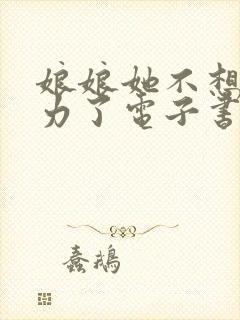 娘娘她不想
力了電子書
蠢鵝